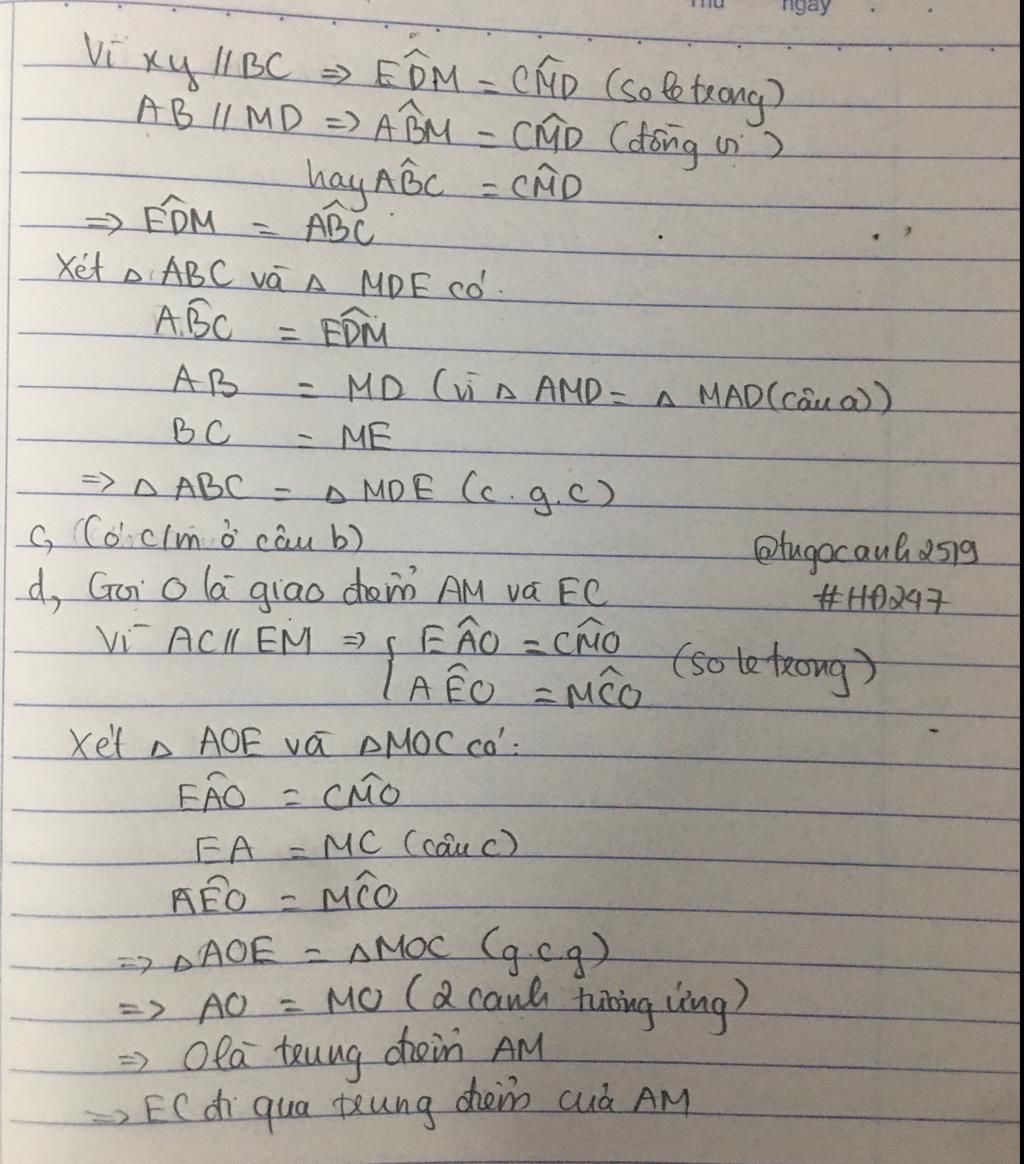 Thứ ngày
Vì xy // BC => ED̂M = CM̂D (so le trong)
AB // MD => AB̂M = CM̂D (đồng vị)
hay AB̂C = CM̂D
=> ED̂M = AB̂C
Xét △ ABC và △ MDE có:
AB̂C = ED̂M
AB = MD (vì △ AMD = △ MAD (câu a))
BC = ME
=> △ ABC = △ MDE (c.g.c)
c, (Có c/m ở câu b)
@tugocanh2519
d, Gọi O là giao điểm AM và EC
#HĐ247
Vì AC // EM => { EÂO = CM̂O
AÊO = MĈO (so le trong)
Xét △ AOE và △MOC có:
EÂO = CM̂O
EA = MC (câu c)
AÊO = MĈO
=> △AOE = △MOC (g.c.g)
=> AO = MO (2 cạnh tương ứng)
=> O là trung điểm AM
=> EC đi qua trung điểm của AM